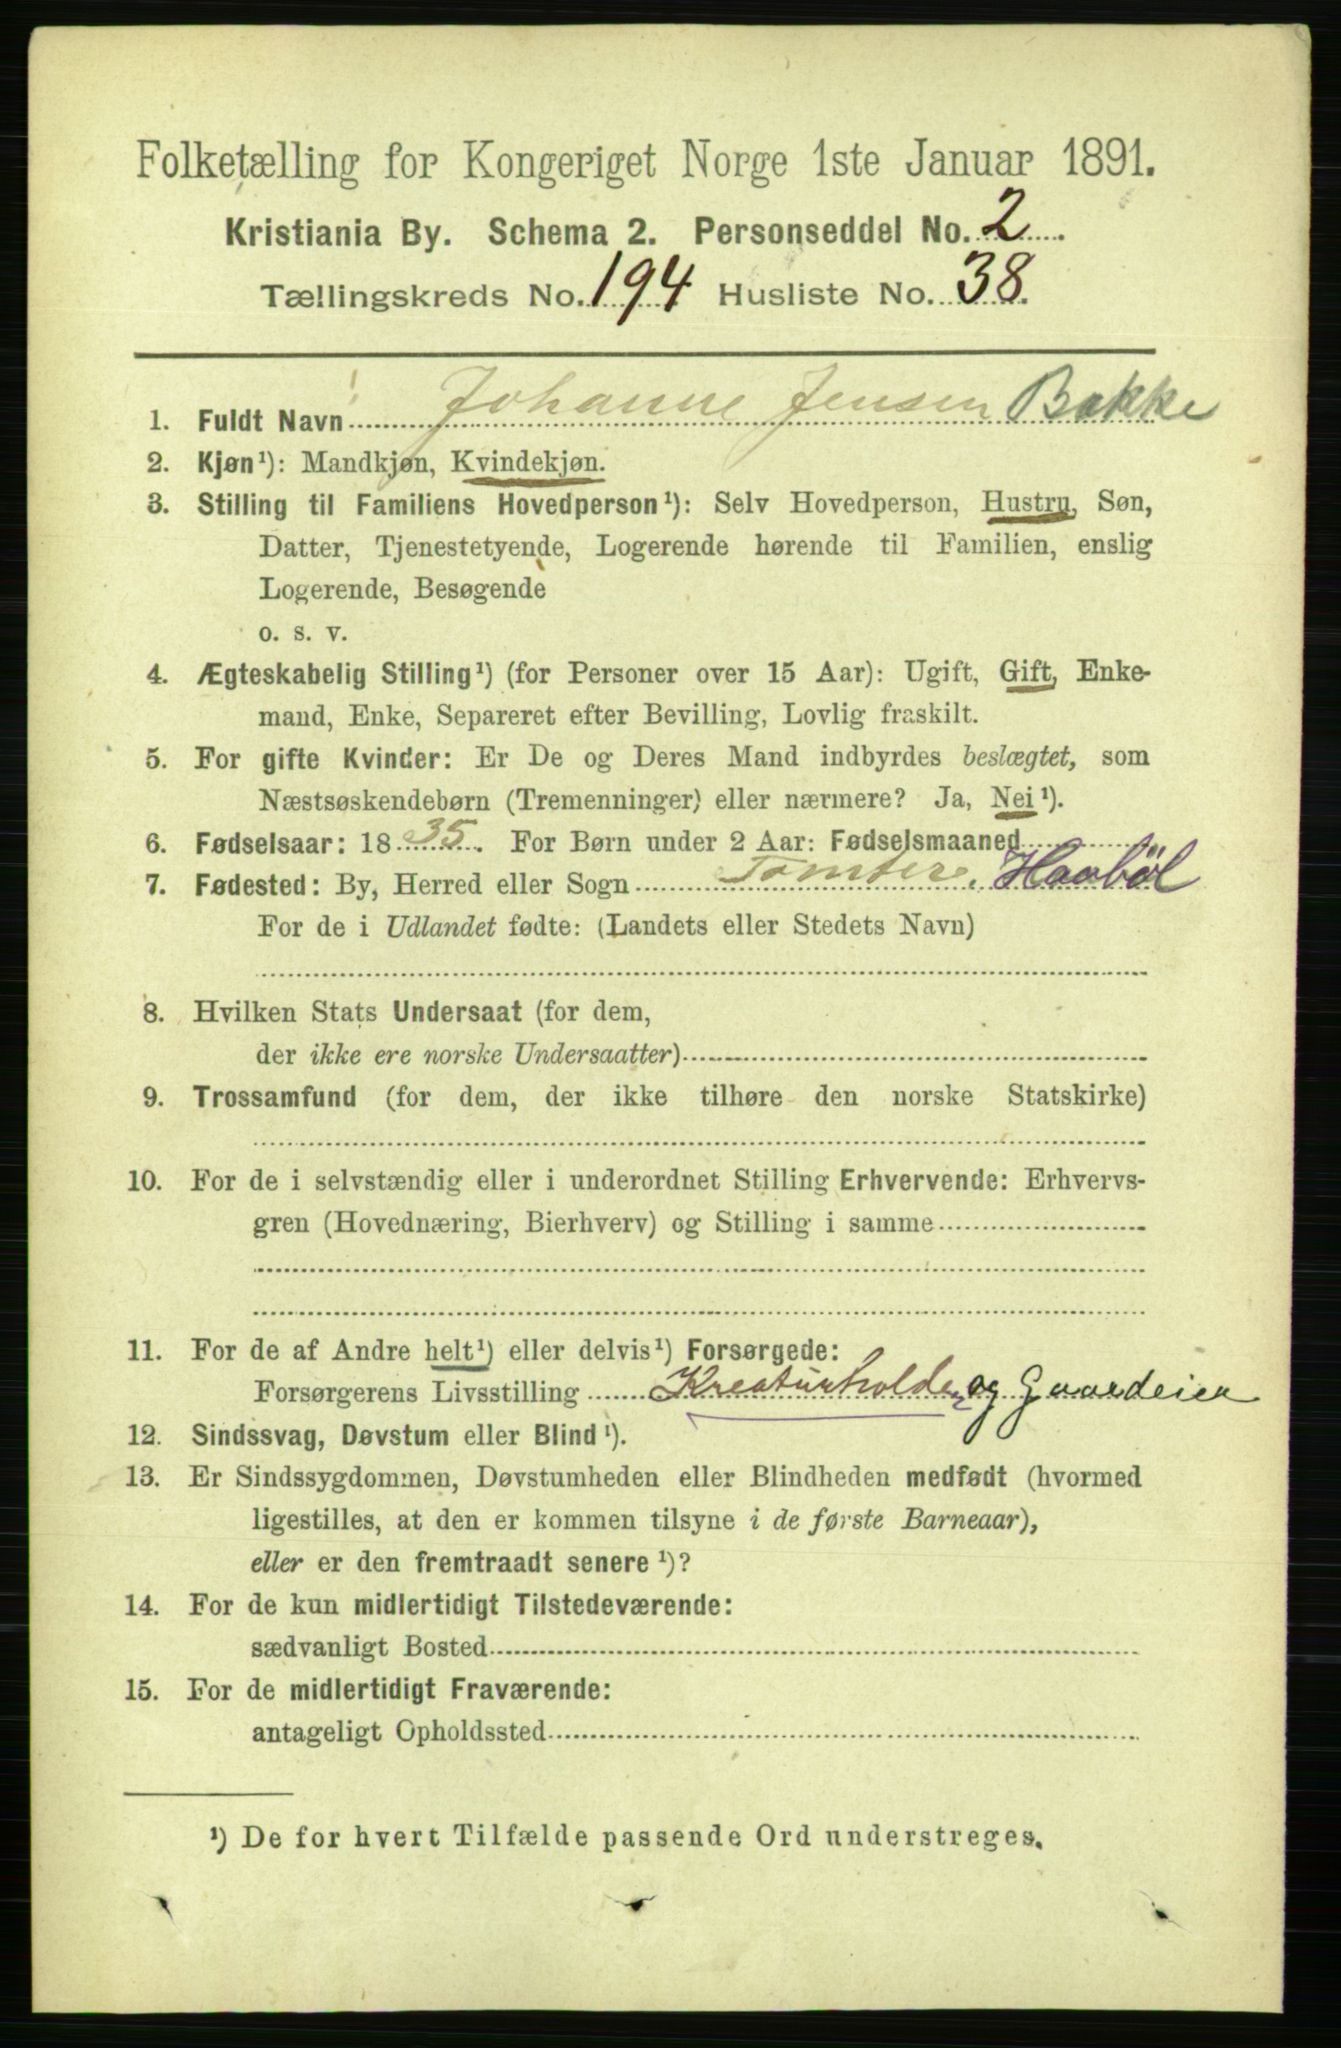 Folketælling for Kongeriget Norge 1ste Januar 1891.
Kristiania By. Schema 2. Personseddel No. 2.
Tællingskreds No. 194 Husliste No. 38.
1. Fuldt Navn Johanne Jensen Bakke
2. Kjøn¹): Mandkjøn, Kvindekjøn.
3. Stilling til Familiens Hovedperson¹): Selv Hovedperson, Hustru, Søn,
Datter, Tjenestetyende, Logerende hørende til Familien, enslig
Logerende, Besøgende
o. s. v.
4. Ægteskabelig Stilling¹) (for Personer over 15 Aar): Ugift, Gift, Enke-
mand, Enke, Separeret efter Bevilling, Lovlig fraskilt.
5. For gifte Kvinder: Er De og Deres Mand indbyrdes beslægtet, som
Næstsøskendebørn (Tremenninger) eller nærmere? Ja, Nei¹).
6. Fødselsaar: 1835. For Børn under 2 Aar: Fødselsmaaned
7. Fødested: By, Herred eller Sogn Tomter. Haabøl
For de i Udlandet fødte: (Landets eller Stedets Navn)
8. Hvilken Stats Undersaat (for dem,
der ikke ere norske Undersaatter)
9. Trossamfund (for dem, der ikke tilhøre den norske Statskirke)
10. For de i selvstændig eller i underordnet Stilling Erhvervende: Erhvervs-
gren (Hovednæring, Bierhverv) og Stilling i samme
11. For de af Andre helt¹) eller delvis¹) Forsørgede:
Forsørgerens Livsstilling Kreaturholder og Gaardeier
12. Sindssvag, Døvstum eller Blind¹).
13. Er Sindssygdommen, Døvstumheden eller Blindheden medfødt (hvormed
ligestilles, at den er kommen tilsyne i de første Barneaar),
eller er den fremtraadt senere¹)?
14. For de kun midlertidigt Tilstedeværende:
sædvanligt Bosted
15. For de midlertidigt Fraværende:
antageligt Opholdssted
¹) De for hvert Tilfælde passende Ord understreges.